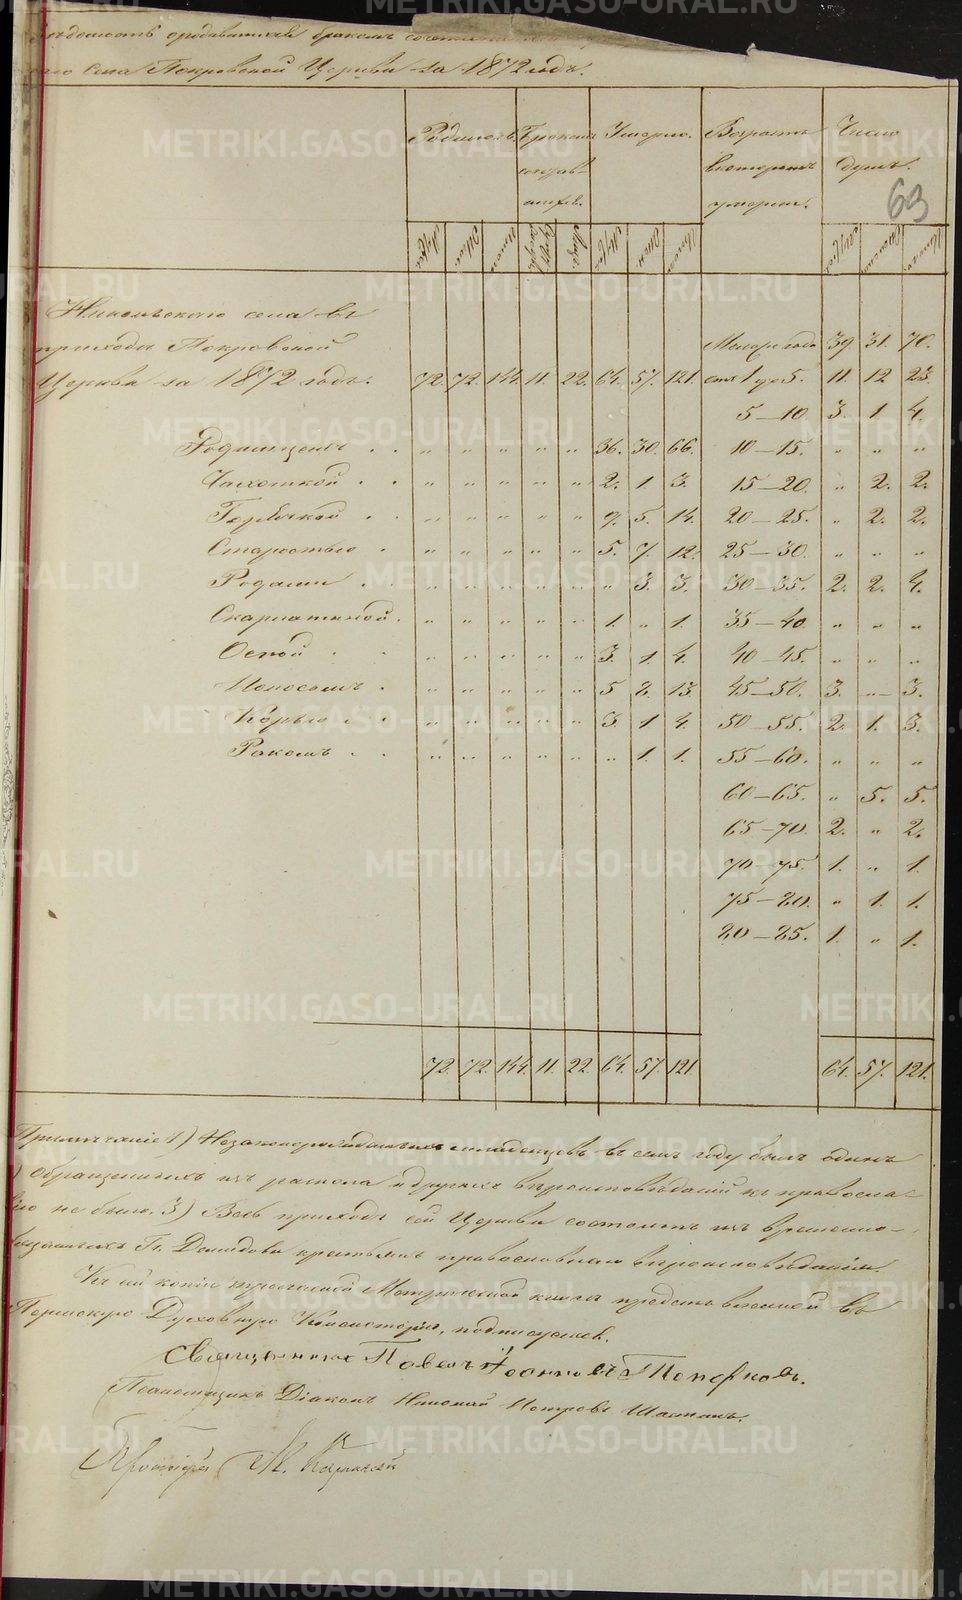 бракомъ
Села Покровской Церкви за 1872 годъ.
Родилось. Бракомъ Умерло. Возрастъ Число
умершихъ. душъ.
63
Муж. Жен. Итого Муж. Жен. Итого Муж. Женс. Итого
Никольскаго села въ
приходѣ Покровской Менѣе года 39. 31. 70.
Церкви за 1872 годъ. 72. 72. 144. 11. 22. 64. 57. 121. отъ 1 до 5. 11. 12 23.
5—10. 3. 1 4.
Родимцемъ . . „ „ „ „ „ 36. 30. 66. 10—15. „ „ „
Чахоткой . . „ „ „ „ „ 2. 1 3. 15—20. „ 2. 2.
Горячкой . . „ „ „ „ „ 9. 5. 14. 20—25. „ 2. 2.
Старостью . „ „ „ „ „ 5. 7. 12. 25—30. „ „ „
Родами . . „ „ „ „ „ „ 3. 3. 30—35. 2. 2. 4.
Скарлатиной . „ „ „ „ „ 1. „ 1. 35—40. „ „ „
Оспой . . „ „ „ „ „ 3. 1. 4. 40—45. „ „ „
Поносомъ . „ „ „ „ „ 5 8. 13. 45—50. 3. „ 3.
Корью . . „ „ „ „ „ 3. 1 4. 50—55. 2. 1. 3.
Ракомъ . . „ „ „ „ „ „ 1. 1. 55—60. „ „ „
60—65. „ 5. 5.
65—70. 2. „ 2.
70—75. 1. „ 1.
75—80. „ 1. 1.
80—85. 1. „ 1.
72. 72. 144. 11. 22. 64. 57. 121. 64. 57. 121.
Примѣчаніе 1) Незаконорожденныхъ младенцевъ въ семъ году былъ одинъ
) Обращенныхъ изъ раскола и другихъ вѣроисповѣданій къ правосла-
вію не было. 3) Весь приходъ сей Церкви состоитъ изъ временно-
обязанныхъ Гг. Демидова крестьянъ православнаго вѣроисповѣданія.
Къ сей копіи троечастной Метрической книги представленной въ
Пермскую Духовную Консисторію, подписуемся.
Священникъ Павелъ Іоанновъ Топорковъ.
Псаломщикъ Діаконъ Николай Петровъ
Протоіерей
METRIKI.GASO-URAL.RU